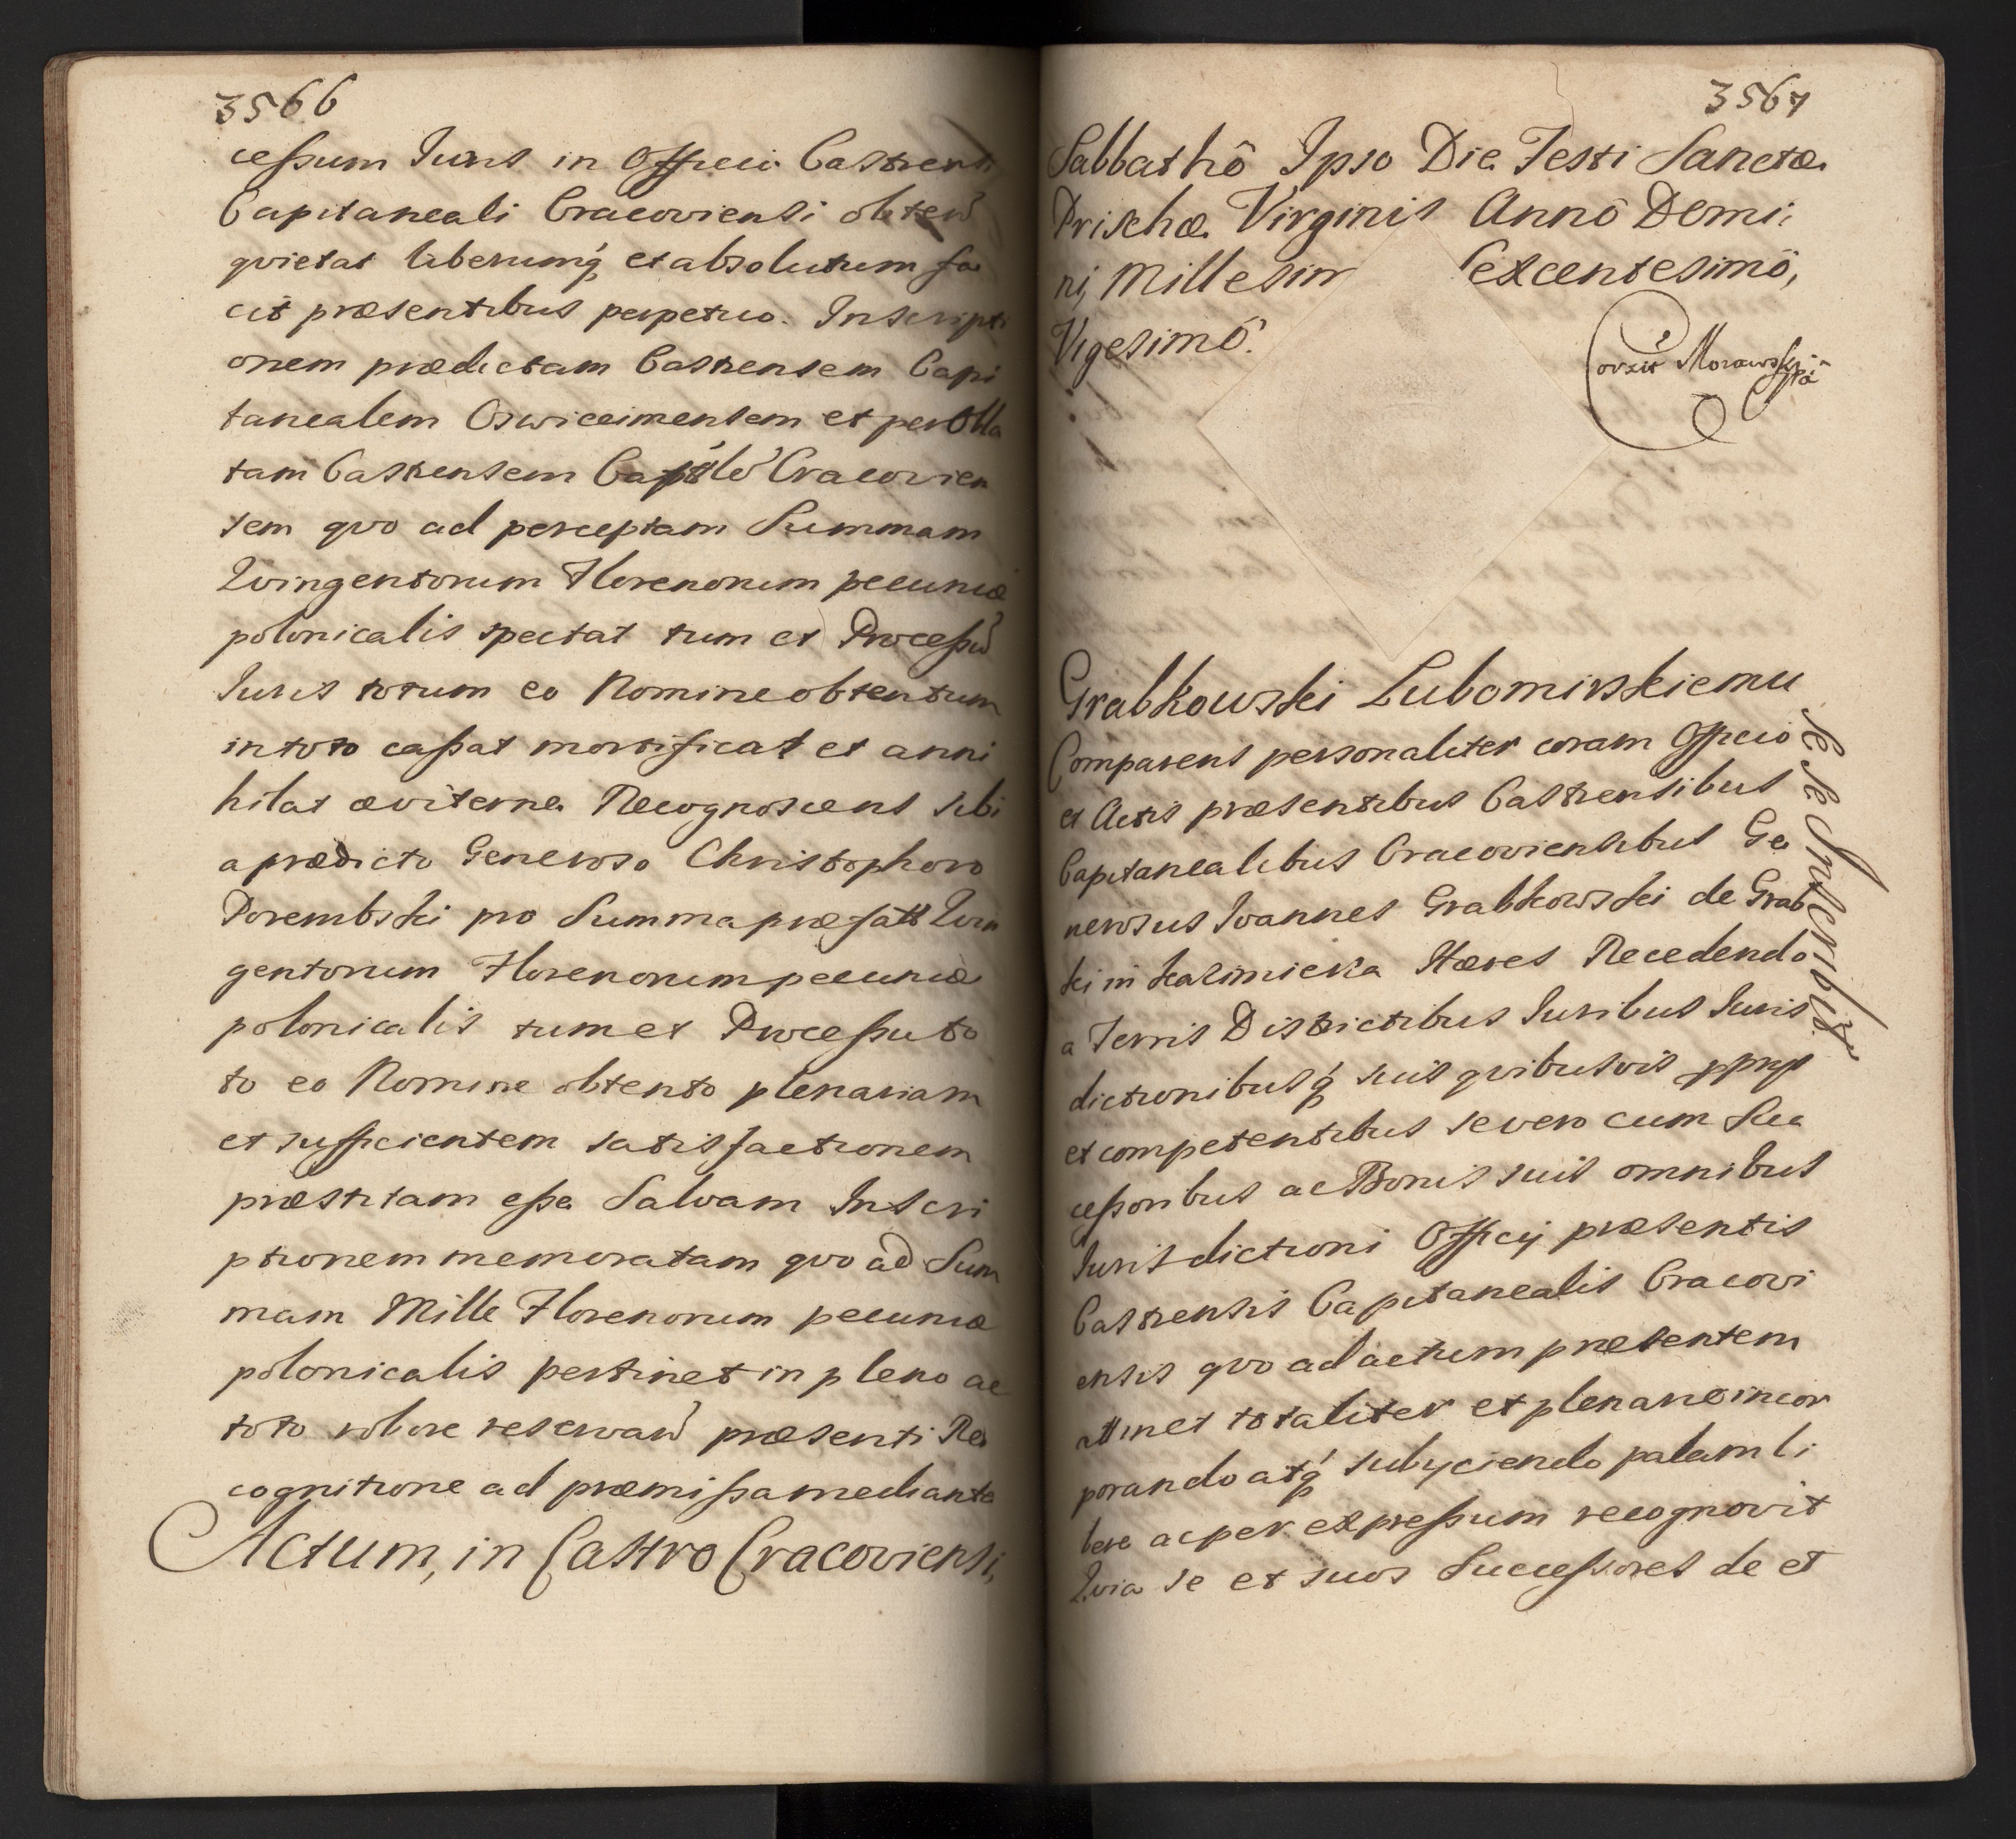 3566
ceßum Iuris in Officio Castrensi
Capitaneali Cracoviensi obten
qvietat liberumq́ et absolutum fa
cit præsentibus perpetuo. Inscripti
onem prædictam Castrensem Capi
tanealem Oswiecimensem et per Obla
tam Castrensem Cracovien
sem qvo ad perceptam Summam
Qvingentorum Florenorum pecuniæ
polonicalis spectat tum et Proceßũ
Iuris totum eo Nomine obtentum
in toto caßat mortificat et anni
hilat æviterne Recognoscens sibi
a prædicto Generoso Christophoro
Porembski pro Summa præfata Qvin
gentorum Florenorum pecuniæ
polonicalis tum et Proceßu to
to eo Nomine obtento plenariam
et sufficientem satisfactionem
præstitam eße Salvam Inscri
ptionem memoratam qvo ad Sum
mam Mille Florenorum pecuniæ
polonicalis pertinet in pleno ac
toto robore reservañ præsenti Re
cognitione ad præmißa mediante
Actum, in Castro Cracoviensi,
3567
Sabbathô Ipso Die Festi Sanctæ
Prischæ Virginis Annô Domi:
ni, Millesim Sexcentesimô,
Vigesimô.
Morawski
Grabkowski Lubomirskiemu
Se Se Inscribit
Comparens personaliter coram Officio
et Actis præsentibus Castrensibus
Capitanealibus Cracoviensibus Ge
nerosus Ioannes Grabkowski de Grab
ki in Kazimierza Hæres Recedendo
a Terris Districtibus Iuribus Iuris
dictionibusq́ suis qvibusvis ppryʃ
et competentibus se vero cum Suc
ceßoribus ac Bonis suis omnibus
Iurisdictioni Officij præsentis
Castrensis Capitanealis Cracovi
ensis qvo ad actum præsentem
attinet totaliter et plenarie incor
porando atq́ subyciendo palam li
bere ac per expreßum recognovit
Qvia se et suos Succeßores de et